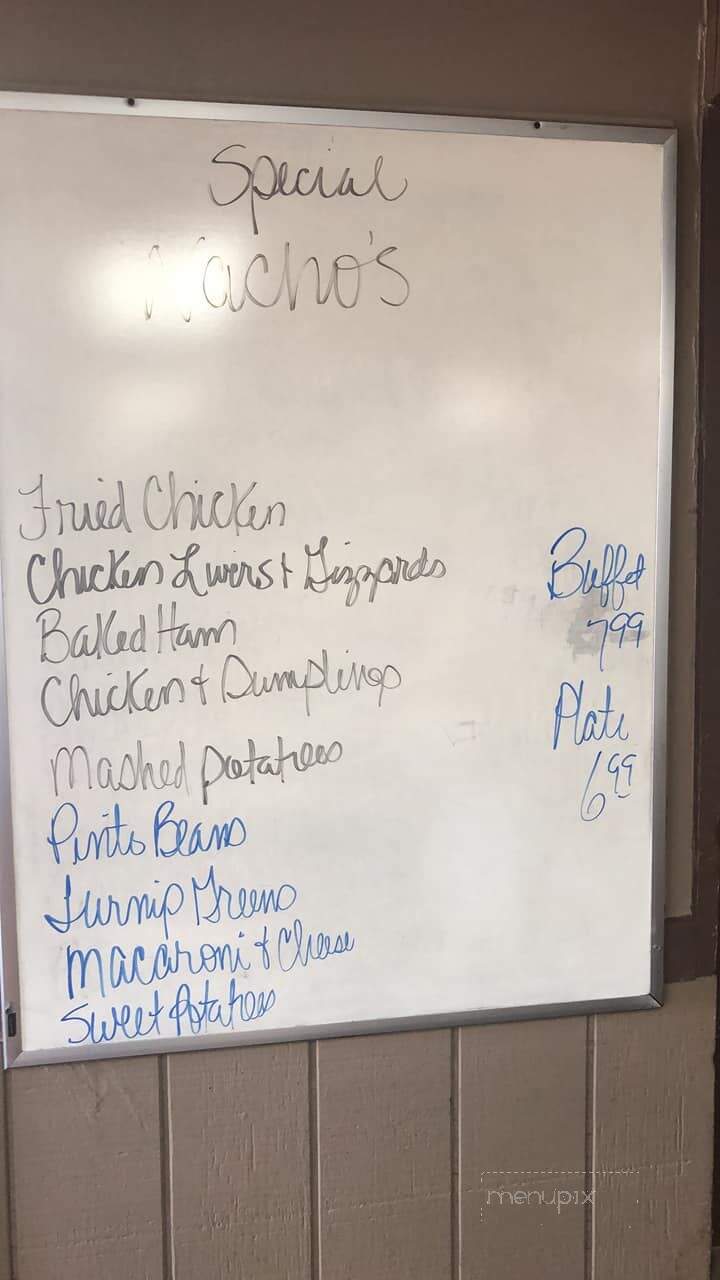 Special
Nacho's
Fried Chicken
Chicken Livers & Gizzards
Baked Ham
Chicken & Dumplings
Mashed potatoes
Pinto Beans
Turnip Greens
Macaroni & Cheese
Sweet Potatoes
Buffet
7.99
Plate
6.99
menupix